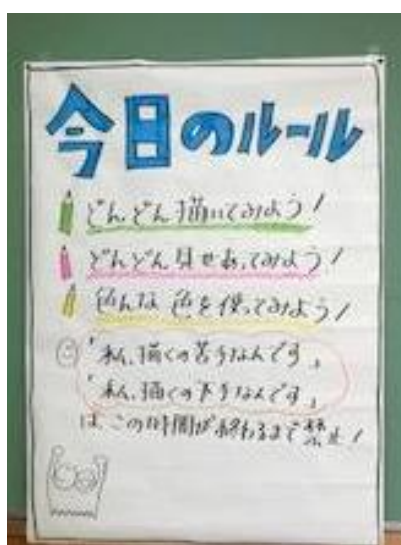 今日のルール
どんどん描いてみよう!
どんどん見せあってみよう!
色んな色を使ってみよう!
「私、描くの苦手なんです」
「私、描くの下手なんです」
は、この時間が終わるまで禁止!